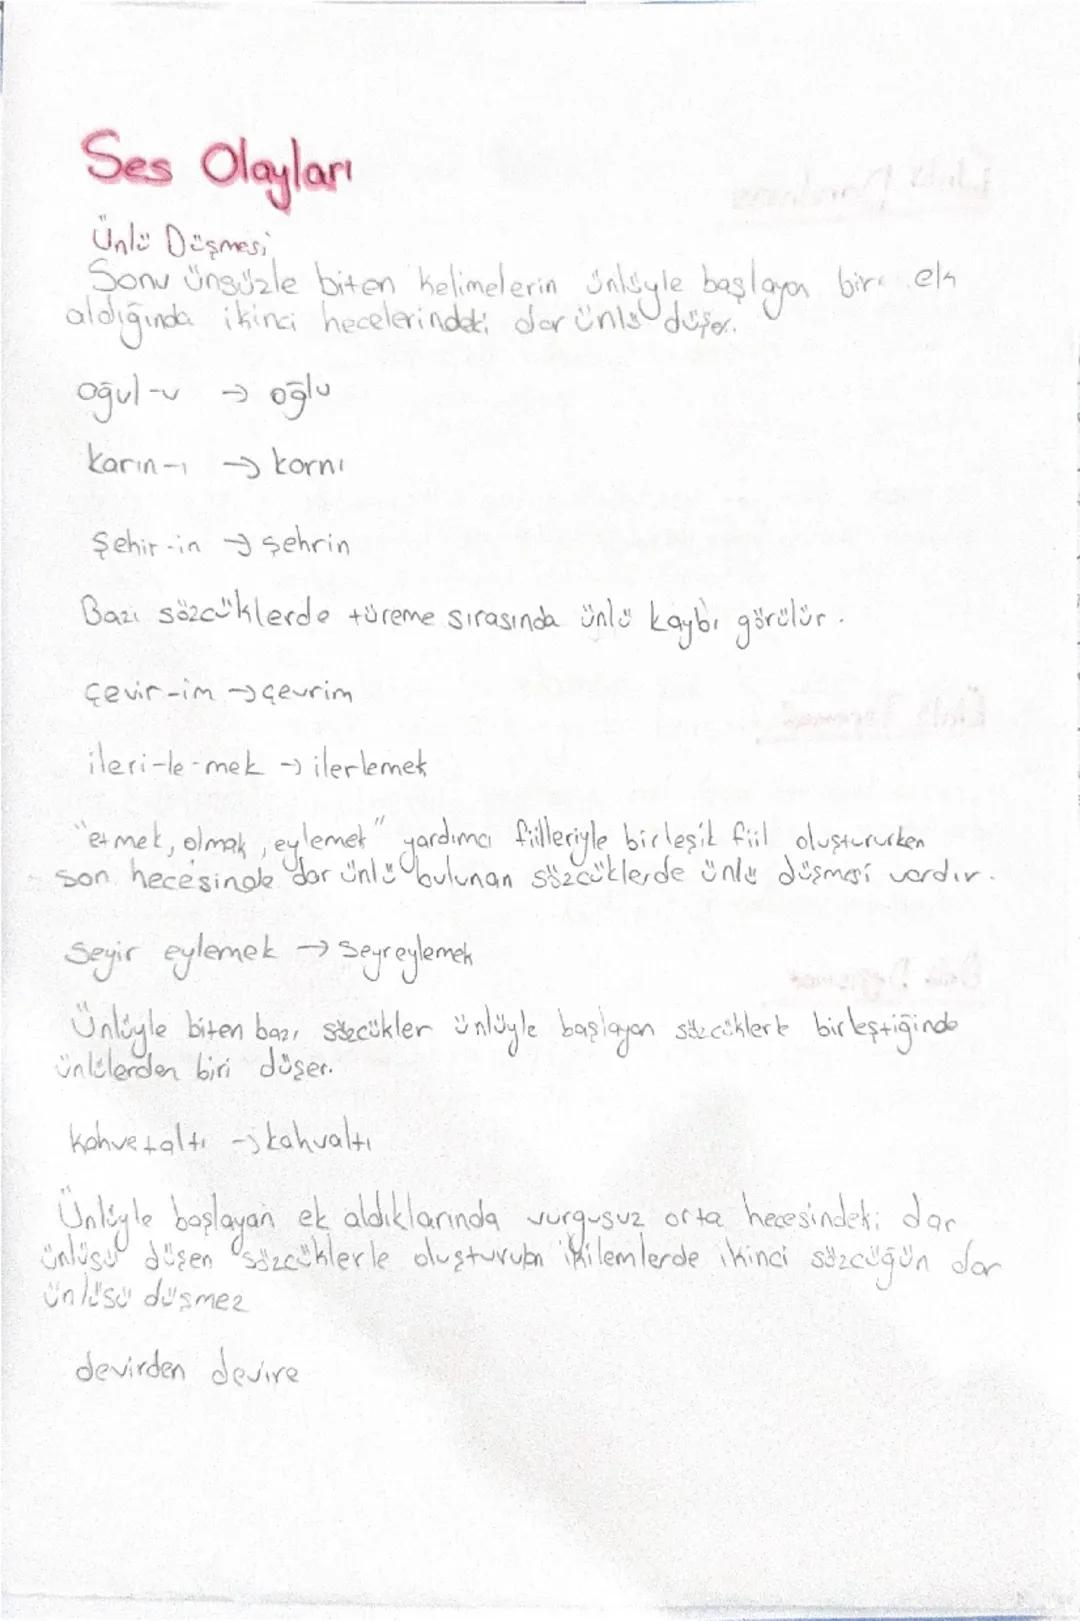 Ses Olayları
Ünlü Düşmesi
Sonu ünsüzle biten kelimelerin ünlüyle başlayan bir ek
aldığında ikinci hecelerindeki dar ünlü düşer.
oğul-u → oğlu
karın-ı → karnı
şehir-in → şehrin
Bazı sözcüklerde türeme sırasında ünlü kaybı görülür.
çevir-im → çevrim
ileri-le-mek → ilerlemek
"etmek, olmak, eylemek" yardımcı fiilleriyle birleşik fiil oluştururken
son hecesinde dar ünlü bulunan sözcüklerde ünlü düşmesi vardır.
Seyir eylemek → Seyreylemek
Ünlüyle biten bazı sözcükler ünlüyle başlayan sözcüklerle birleştiğinde
ünlülerden biri düşer.
kahve+altı → kahvaltı
Ünlüyle başlayan ek aldıklarında vurgusuz orta hecesindeki dar
ünlüsü düşen sözcüklerle oluşturulan ikilemlerde ikinci sözcüğün dar
ünlüsü düşmez
devirden devire